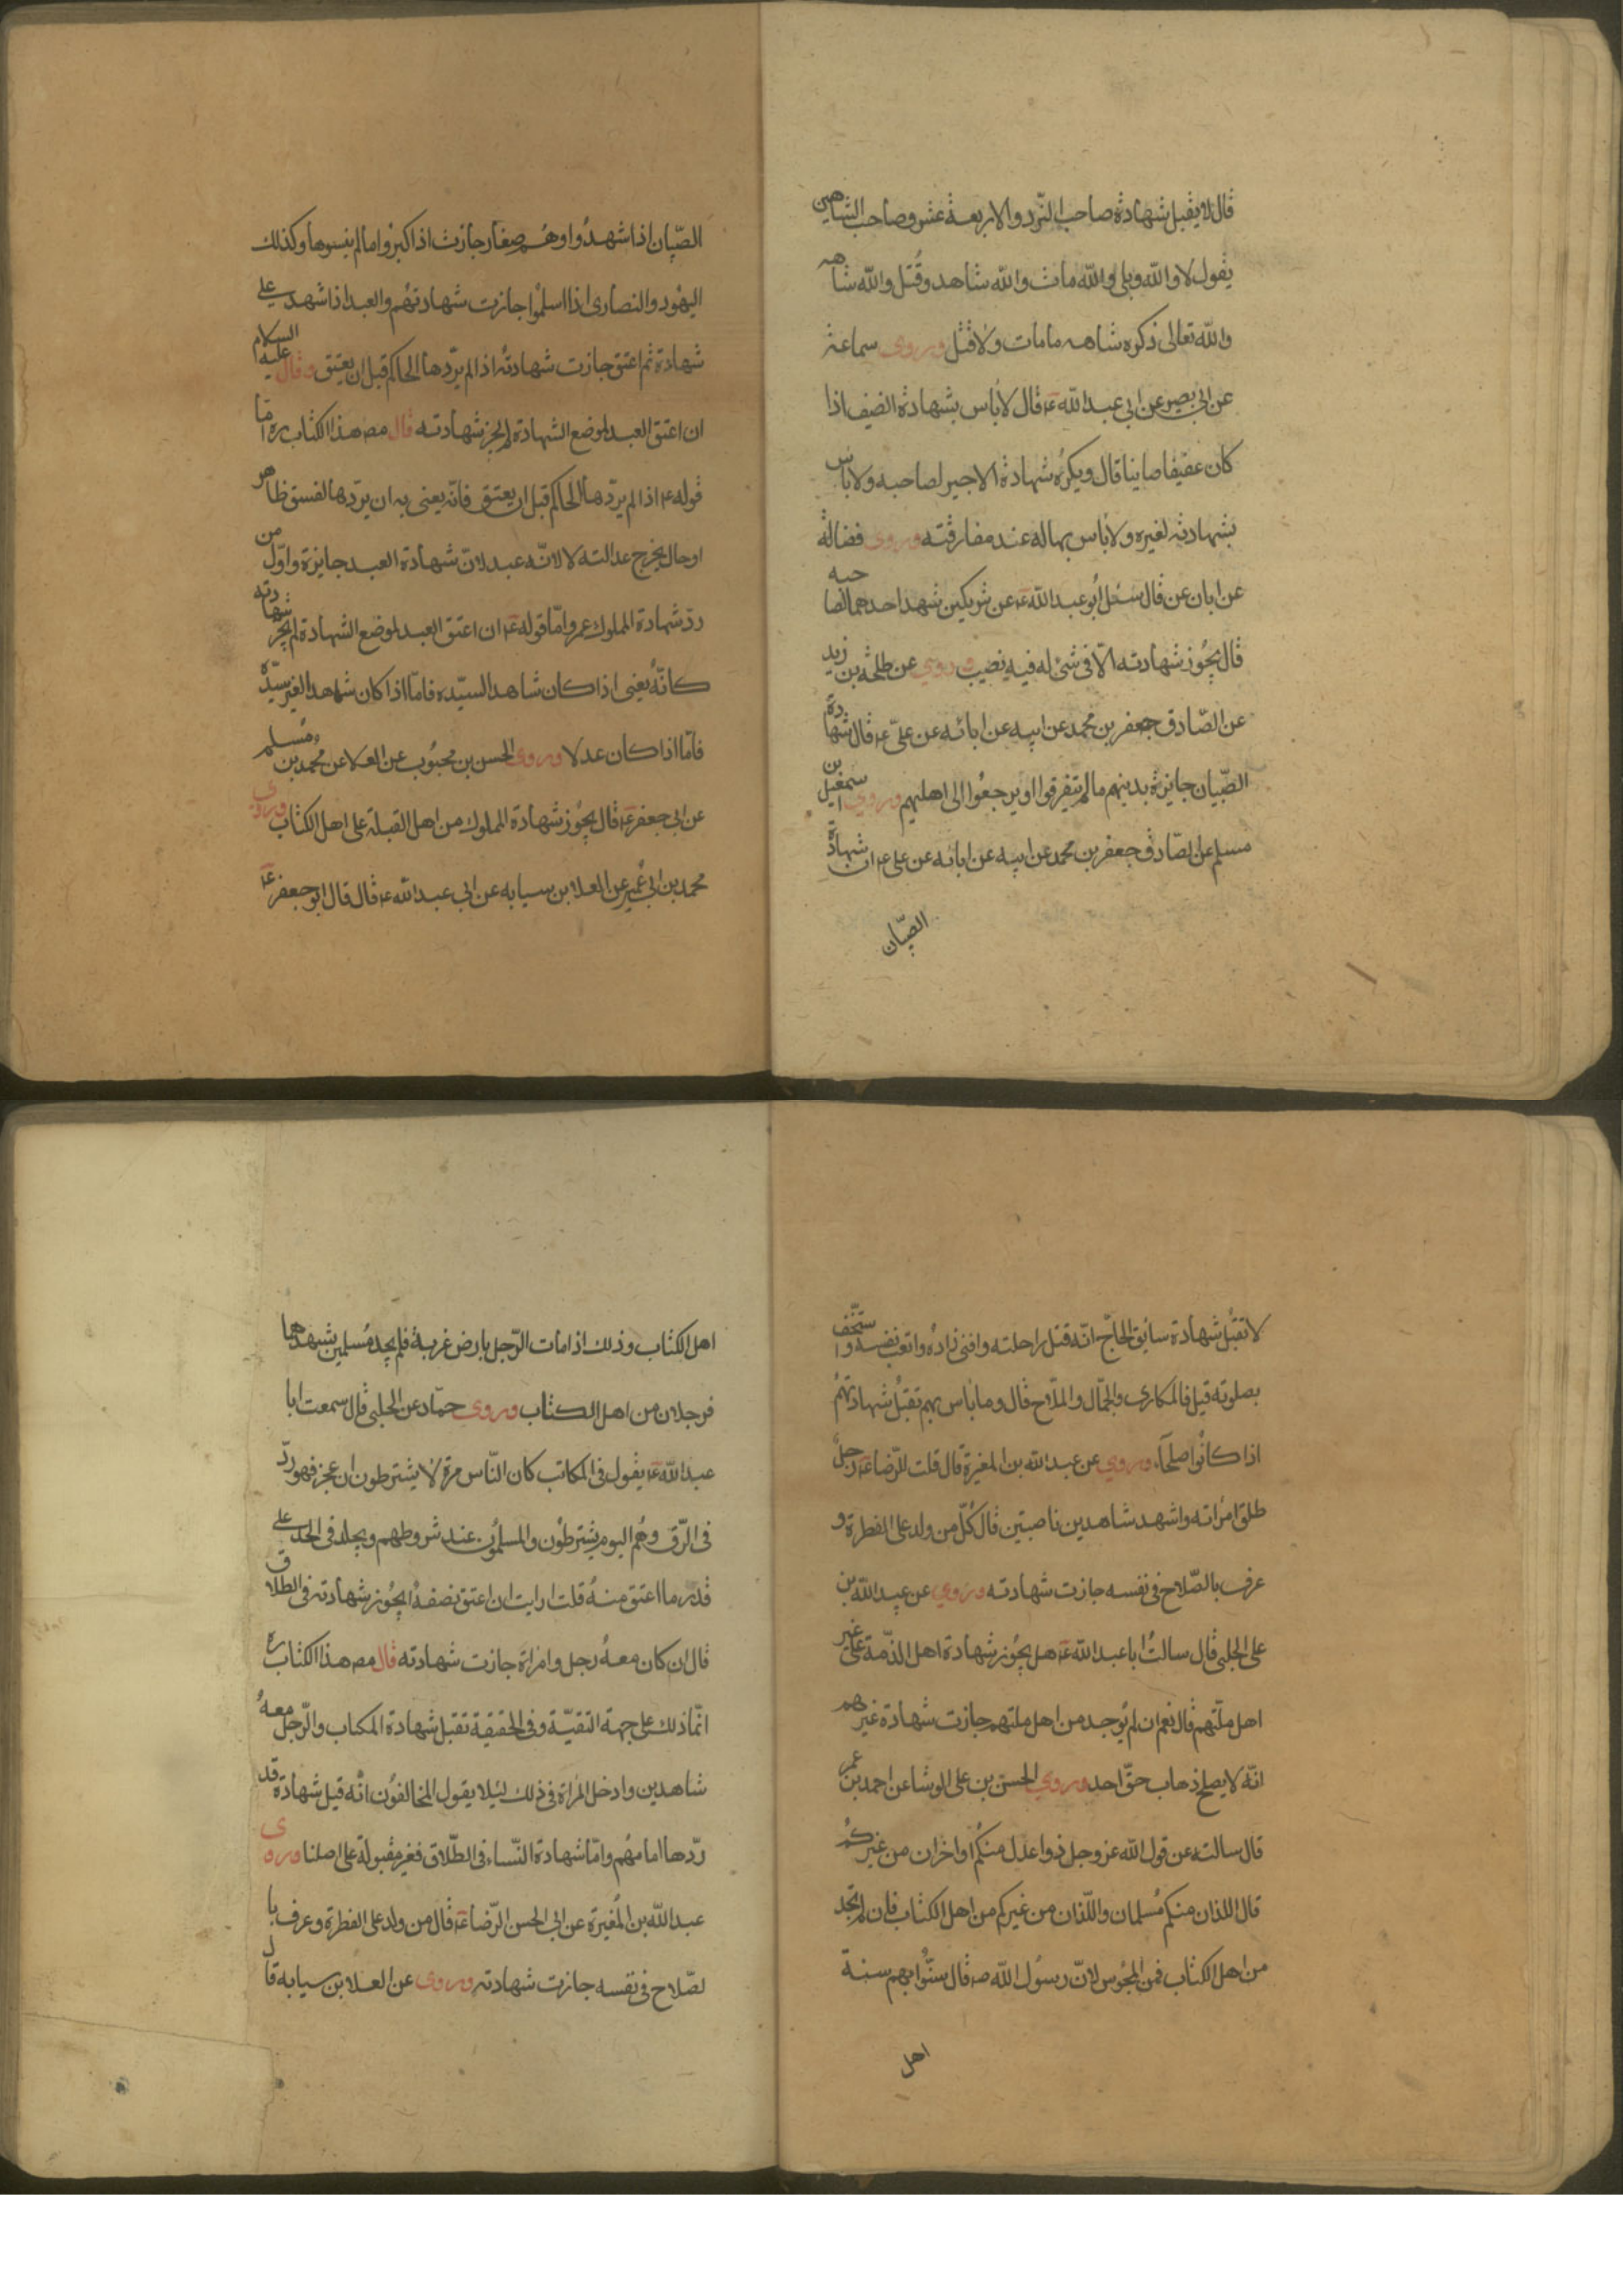 قال لا يقبل شهادة صاحب النّرد والاربعة عشر وصاحب الشاهين
يقول لا والله وبلى والله مات والله شاهه وقُتل والله شاهه
والله تعالى ذكره شاهه ما مات ولا قتل وروى سماعة
عن ابى بصير عن ابى عبد الله ع قال لا باس بشهادة الضيف اذا
كان عفيفا صاينا قال ويكره شهادة الاجير لصاحبه ولا باس
بشهادته لغيره ولا باس بها له عند مفارقته وروى فضالة
عن ابان عن قال سئل أبو عبد الله ع عن شريكين شهد احدهما لصاحبه
قال يجُوز شهادته الّا فى شئ له فيه نصيب وروي عن طلحة بن زيد
عن الصّادق جعفر بن محمد عن ابيه عن ابائه عن علىّ ع قال شهادة
الصّبيان جايزة بينهم ما لم يتفرقوا او يرجعوا الى اهليهم وروي اسمعيل بن
مسلم عن الصّادق جعفر بن محمد عن ابيه عن ابائه عن على ع ان شهادة
الصّبيان
الصّبيان اذا شهدُوا وهُم صِغار جازت اذا كبرُوا ما لم ينسوها وكذلك
اليهُود والنصارى اذا اسلمُوا جازت شهادتهُم والعبد اذا شهد على
شهادة ثم اعتق جازت شهادتهُ اذا لم يرّدها الحاكم قبل ان يعتق وقال عليه السلام
ان اعتق العبد لموضع الشهادة لم يجز شهادته قال مص هذا الكتاب ره امّا
قوله ع اذا لم يردّها الحاكم قبل ان يعتق فانّه يعنى به ان يردّها لفسق ظاهر
او حال يخرج عدالته لا لانّه عبد لانّ شهادة العبد جايزة واوّل من
ردّ شهادة المملوك عمر وامّا قوله ع ان اعتق العبد لموضع الشهادة لم يجز شهادته
كانّهُ يعنى اذا كان شاهد السيّده فامّا اذا كان شاهد الغير سيّده
فامّا اذا كان عدلا وروى الحسن بن محبُوب عن العلا عن محمد بن مُسلم
عن ابى جعفر ع قال يجُوز شهادة المملوك من اهل القبلة على اهل الكتاب وروى
محمد بن ابى عُمير عن العلا بن سيابه عن ابى عبد الله ع قال قال ابو جعفر ع
لا تقبلُ شهادة سابق الحاجّ انّه قتل راحلته وافنى زادهُ واتعب نفسه واستخّف
بصلوته قيل فالمكارى والجمّال والملّاح قال وما باس بهم تقبلُ شهادتهُم
اذا كانُوا صلحآء وروي عن عبد الله بن المغيرة قال قلت للرّضا ع رجلٌ
طلق امراته واشهد شاهدين ناصبتين قال كلّ من ولد على الفطرة و
عرف بالصّلاح فى نفسه جازت شهادته وروي عن عبيد الله بن
على الحلبى قال سالتُ ابا عبد الله ع هل يجُوز شهادة اهل الذمّة على غير
اهل ملّتهم قال نعم ان لم يُوجد من اهل ملتهم جازت شهادة غيرهم
انّه لا يصلح ذهاب حقّ احد وروي الحسن بن على الوشا عن احمد بن عمر
قال سالته عن قول الله عز وجل ذوا عدل منكُم او اخران من غيركُم
قال اللذان منكم مُسلمان واللّذان من غيركم من اهل الكتاب فان لم تجد
من اهل الكتاب فمن المجُوس لانّ رسُول الله ص قال سنّوا بهم سنة
اهل
اهل الكتاب وذلك اذا مات الرّجل بارض غربة فلم يجد مُسلمين يشهدهما
فرجلان من اهل الكتاب وروى حمّاد عن الحلبى قال سمعت ابا
عبد الله ع يقول فى المكاتب كان النّاس مرة لا يشترطون ان عجز فهو ردّ
فى الرّق وهُم اليوم يشترطُون والمسلمُون عند شروطهم ويجلد فى الحد على
قدر ما اعتق منهُ قلت ارايت ان اعتق نصفهُ ايجُوز شهادته فى الطلاق
قال ان كان معهُ رجل وامراة جازت شهادته قال مص هذا الكتاب ره
انّما ذلك على جهة التقيّة وفى الحقيقة تقبل شهادة المكاب والرّجل معهُ
شاهدين وادخل المراة فى ذلك ليلا يقول المخالفُون انّه قبل شهادة قد
ردّها امامهُم وامّا شهادة النّساء فى الطّلاق فغير مقبولة على اصلنا وروى
عبد الله بن المُغيرة عن ابى الحسن الرّضا ع قال من ولد على الفطرة وعرف با
لصّلاح فى نفسه جازت شهادته وروى عن العلا بن سيابه قال